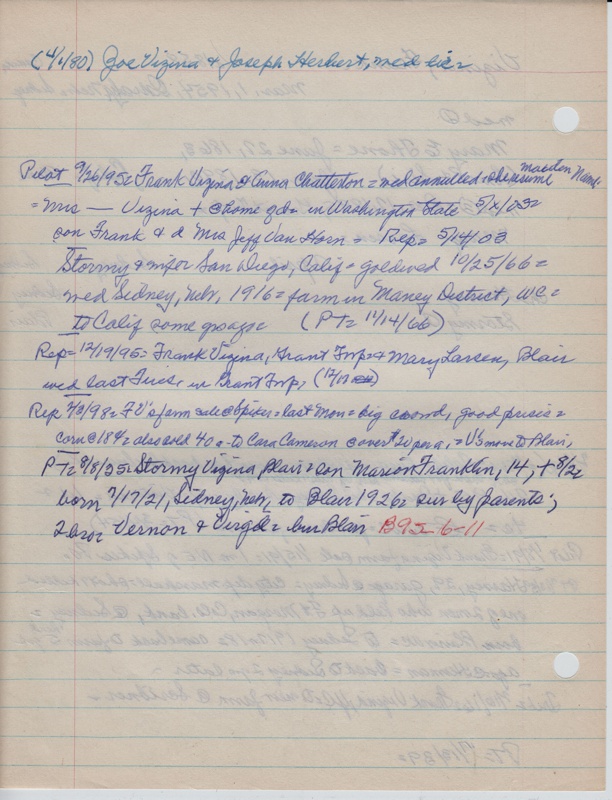 (4/1/80) Zoe Vizina & Joseph Herbert, med lic=
maiden Name
Pilot 9/26/95= Frank Vizina & Anna Chatterton = med annulled + she resume
= Mrs — Vizina + @ home of d= in Washington State 5/12/03=
son Frank & d Mrs Jeff Van Horn = Rep= 5/14/03
Stormy & wife San Diego, Calif= goldwed 10/25/66=
med Sidney, Neb, 1916= farm in Maney District, WC=
To Calif some yrs ago= (PT= 11/14/66)
Rep= 12/19/95= Frank Vizina, Grant Twp= & Mary Larsen, Blair
wed last Tues, in Grant Twp, (12/17)
Rep 3/2/98= FV's farm sale @ Spiker= last Mon= big crowd, good prices=
corn @ 18¢= also sold 40 a= to Cara Cameron @ over $20 per a, = V's move to Blair,
PT= 8/8/35= Stormy Vizina Blair= son Marion Franklin, 14, + 8/2=
born 7/17/21, Sidney, Neb, to Blair 1926= sur by parents;
2 bro= Vernon & Virgil= bur Blair B95-6-11